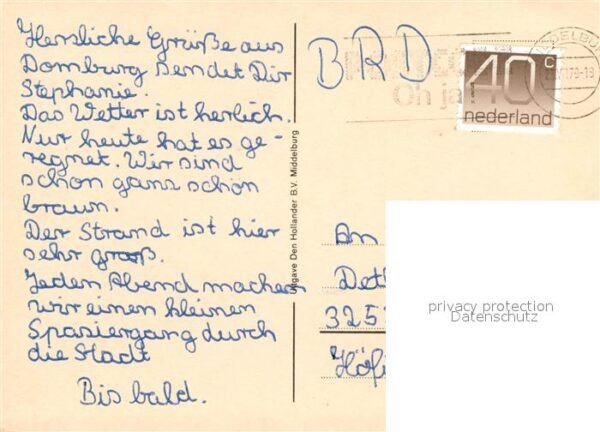 Herzliche Grüße aus
Domburg sendet Dir
Stephanie.
Das Wetter ist herlich.
Nur heute hat es ge-
regnet. Wir sind
schon ganz schön
braun.
Der Strand ist hier
sehr groß.
Jeden Abend machen
wir einen kleinen
Spaniergang durch
die Stadt
Bis bald.
Uitgave Den Hollander B.V. Middelburg
BRD
Oh ja
40c
nederland
An
Det
325
Höf
privacy protection
Datenschutz